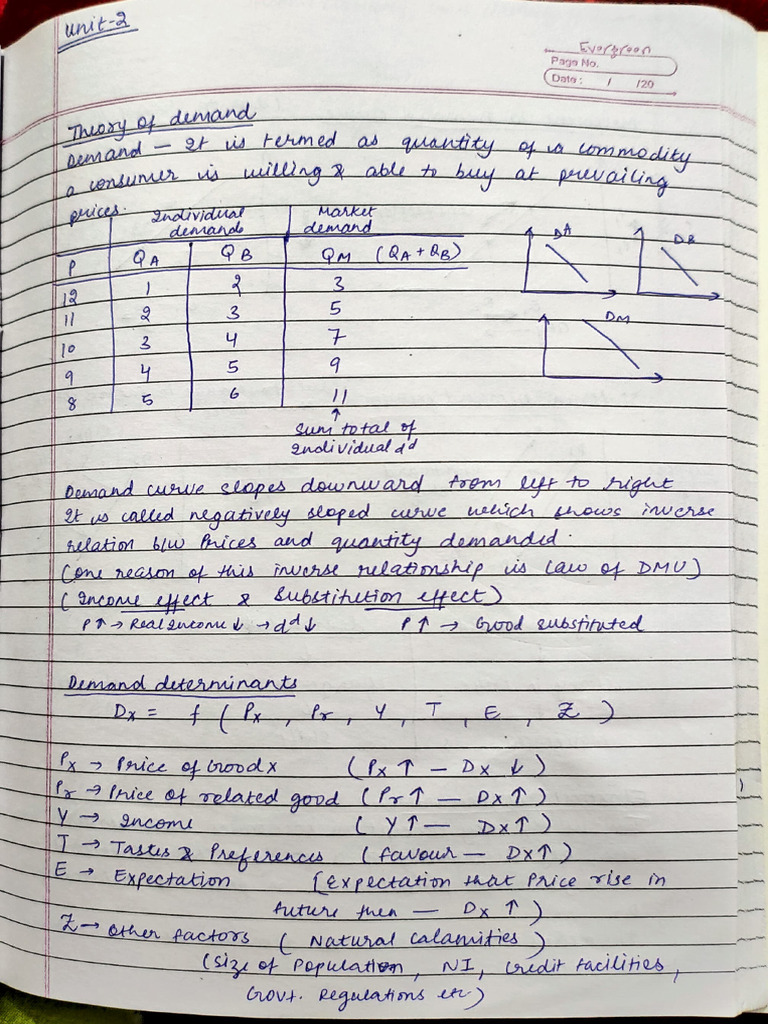 Unit-2
Evergreen
Page No.
Date: / /20
Theory of demand
Demand — It is termed as quantity of a commodity
a consumer is willing & able to buy at prevailing
prices.
Individual demands | Market demand
P | QA | QB | QM (QA + QB)
12 | 1 | 2 | 3
11 | 2 | 3 | 5
10 | 3 | 4 | 7
9 | 4 | 5 | 9
8 | 5 | 6 | 11
DA
DB
DM
↑
Sum total of
Individual dd
Demand curve slopes downward from left to right
It is called negatively sloped curve which shows inverse
relation b/w Prices and quantity demanded.
(One reason of this inverse relationship is Law of DMU)
(Income effect & Substitution effect)
P↑ → Real Income ↓ → dd ↓ P↑ → Good substituted
Demand determinants
Dx = f ( Px , Pr , Y , T , E , Z )
Px → Price of Good x (Px ↑ — Dx ↓)
Pr → Price of related good (Pr ↑ — Dx ↑)
Y → Income (Y ↑ — Dx ↑)
T → Tastes & Preferences (favour — Dx ↑)
E → Expectation (Expectation that Price rise in
future then — Dx ↑)
Z → Other factors (Natural calamities)
(Size of Population, NI, Credit facilities,
Govt. Regulations etc)